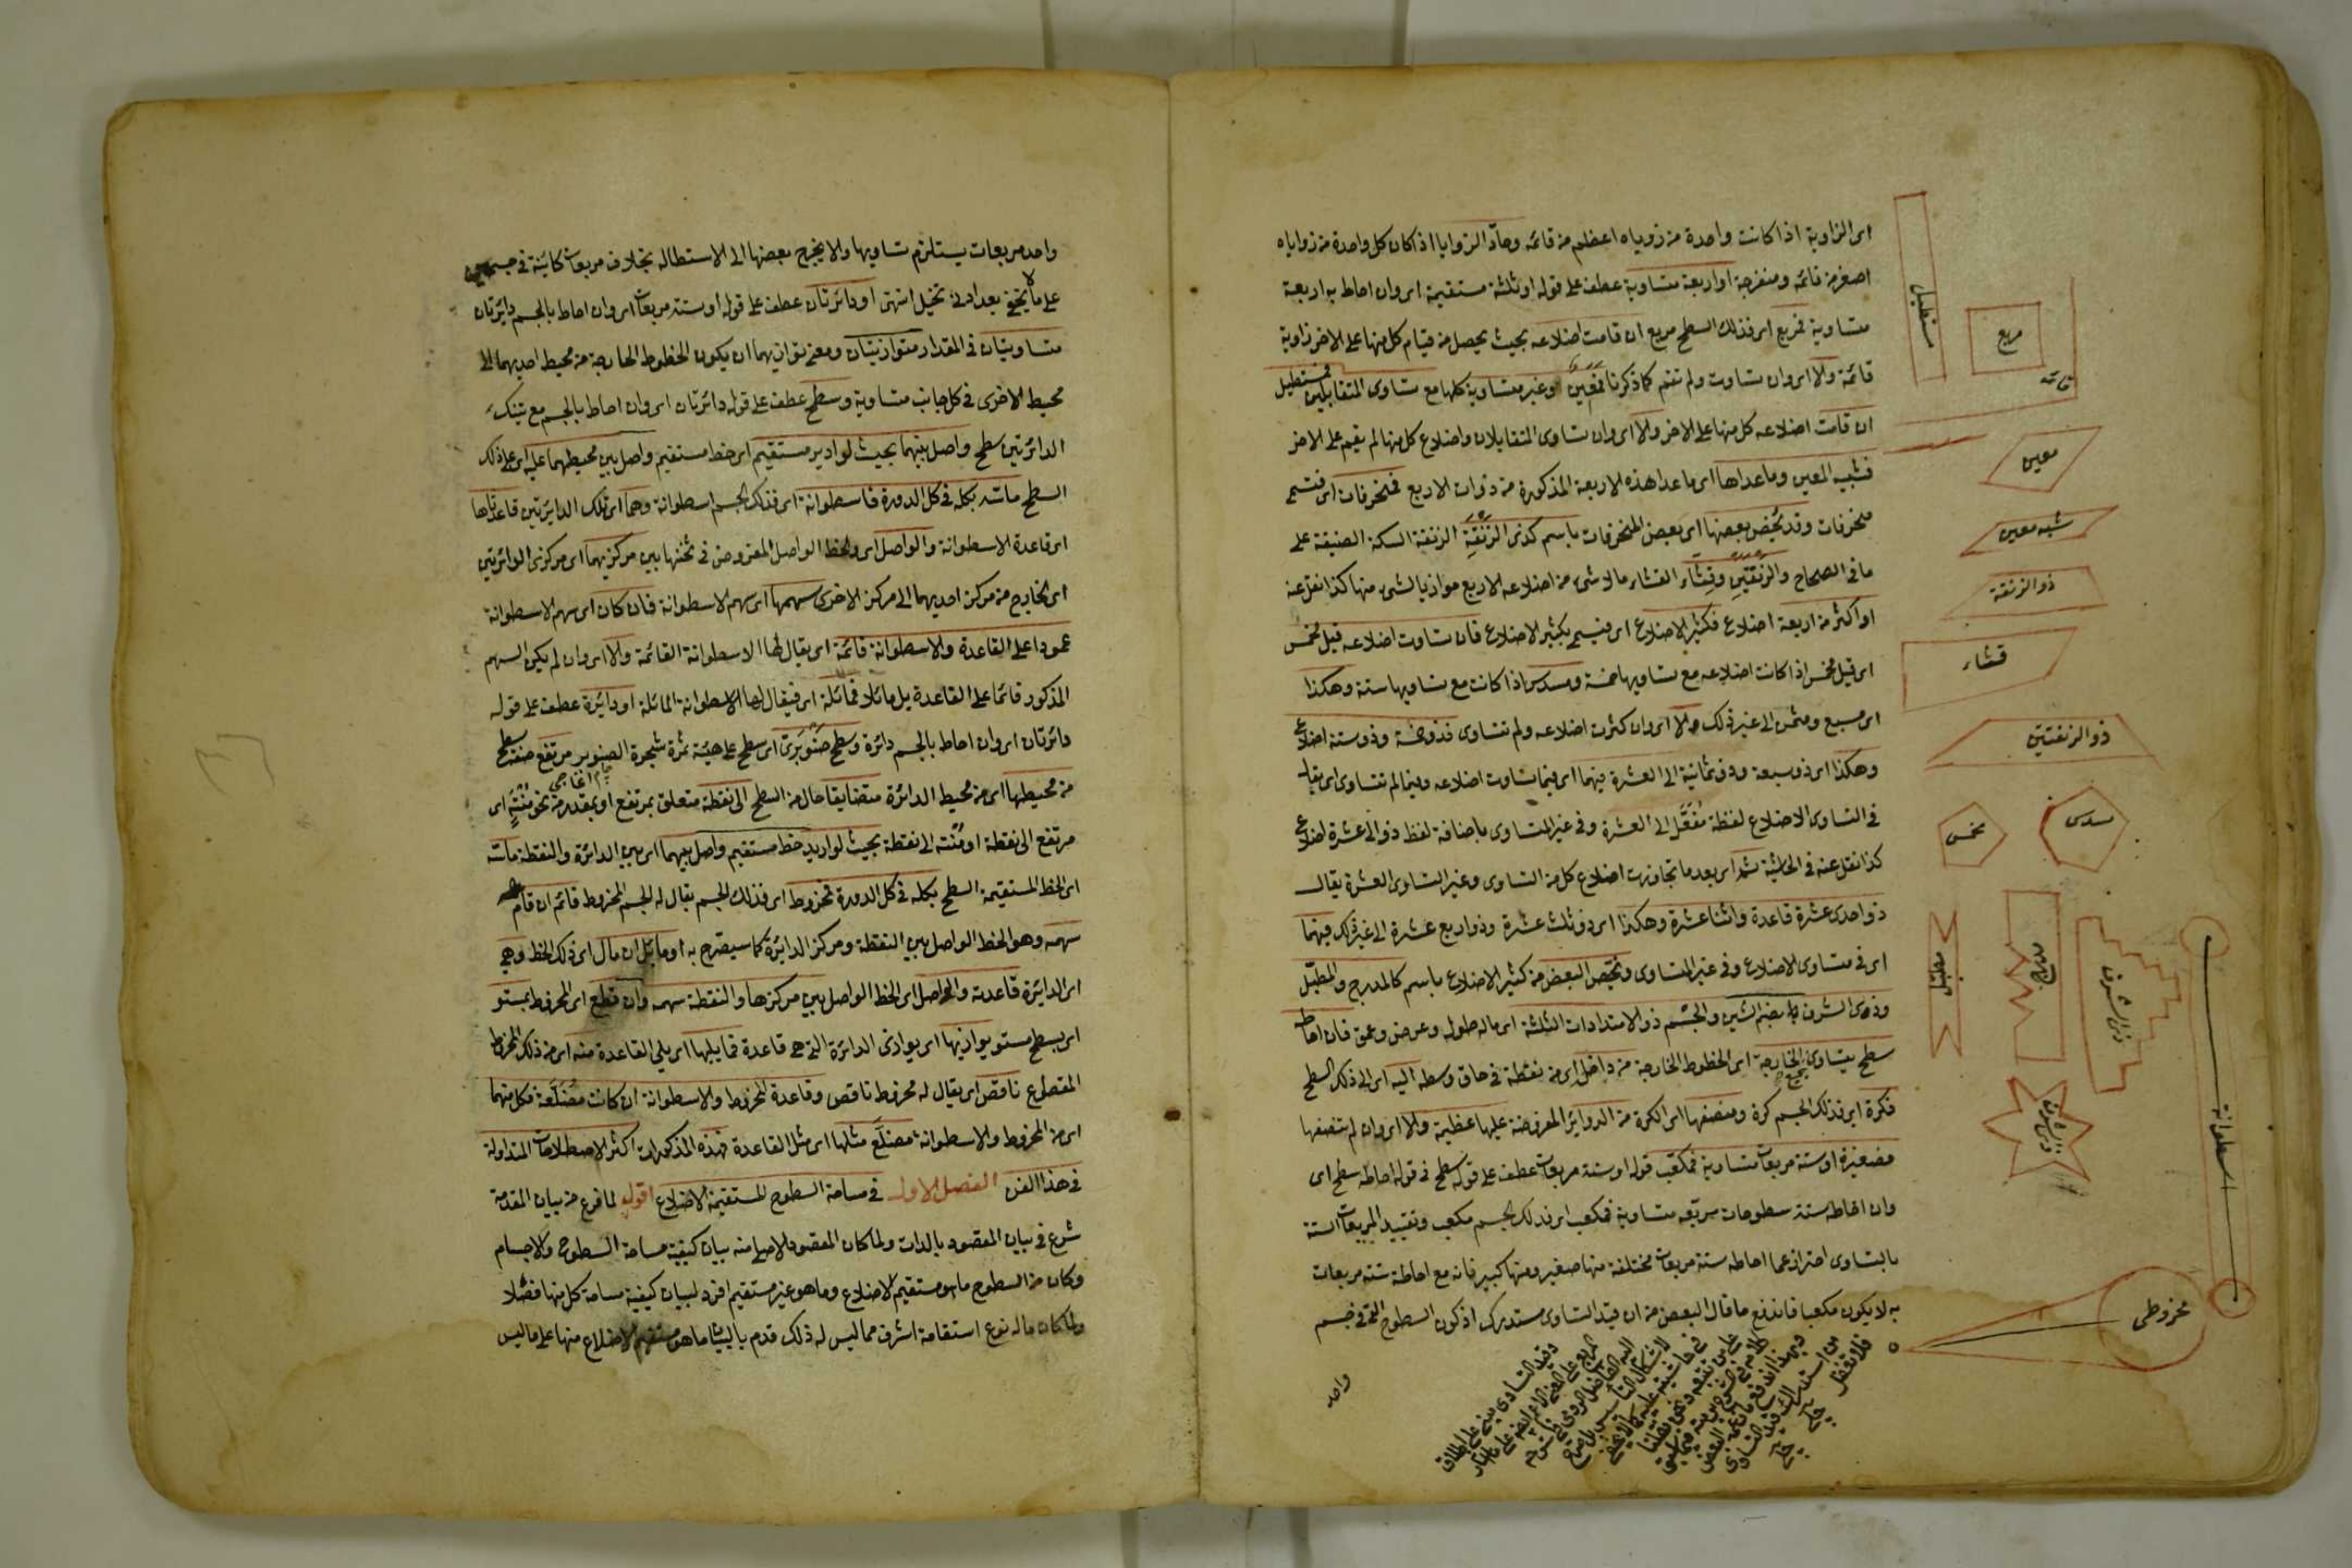 اى الزاوية اذا كانت واحدة من زوياه اعظم من قائمة وحادّ الزوايا اذا كان كل واحدة من زواياه
اصغر من قائمة ومنفرجة او اربعة متساوية عطف على قوله او ثلثة مستقيمة اى وان احاط به اربعة
متساوية فمربع اى فذلك السطح مربع ان قامت اضلاعه بحيث يحصل من قيام كل منها على الاخر زاوية
قائمة والا اى وان تساوت ولم تقم كما ذكرنا فمعين وغير متساوية كلها مع تساوى المتقابلين فمستطيل
ان قامت اضلاعه كل منها على الاخر والا اى وان تساوى المتقابلان واضلاع كل منها لم يقم على الاخر
فشبيه المعين وما عداها اى ما عدا هذه الاربعة المذكورة من ذوات الاربع فمنحرفات اى فتسمى
منحرفات وقد يخص بعضها اى بعض المنحرفات باسم كذى الزنقة الزنقة السكة الضيقة على
ما فى الصحاح والزنقتين وقثاء القثاء ما لا شئ من اضلاعه الاربع موازيا لشئ منها كذا نقل عنه
او اكثر من اربعة اضلاع فكثير الاضلاع اى فيسمى بكثير الاضلاع فان تساوت اضلاعه قيل مخمس
اى قيل مخمس اذا كانت اضلاعه مع تساويها خمسة ومسدس اذا كانت مع تساويها ستة وهكذا
اى مسبع ومثمن الى غير ذلك والا اى وان كثرت اضلاعه ولم تتساوى فذو خمسة وذو ستة اضلاع
وهكذا اى ذو سبعة وذو ثمانية الى العشرة فيهما اى فيما تساوت اضلاعه وفيما لم تتساوى اى يقال
فى التساوى الاضلاع لفظة مُفَعَّل الى العشرة وفى غير المتساوى باضافة لفظ ذو الى عشرة اضلاع
كذا نقل عنه فى الحاشية ثم اى بعد ما تجاوزت اضلاع كل من التساوى وغير التساوى العشرة يقال
ذو احدى عشرة قاعدة واثنا عشرة وهكذا اى ذو ثلث عشرة وذو اربع عشرة الى غير ذلك فيهما
اى فى متساوى الاضلاع وفى غير المتساوى ويختص البعض من كثير الاضلاع باسم كالمدرج والمطبل
وذوى الشرف بضم الشين والجسم ذو الامتدادات الثلثة اى ما له طول وعرض وعمق فان احاط
سطح يتساوى الخارجة اى الخطوط الخارجة من داخل اى من نقطة فى حاق وسطه اليه اى الى ذلك السطح
فكرة اى فذلك الجسم كرة ومنصفها اى الكرة من الدوائر المفروضة عليها عظيمة والا اى وان لم تنصفها
فصغيرة او ستة مربعات متساوية فمكعب قوله او ستة مربعات عطف على قوله سطح فى قوله احاطه سطح اى
وان احاطه ستة سطوحات مربعة متساوية فمكعب اى فذلك الجسم مكعب وتقييد المربعات الستة
بالتساوى احتراز عما احاطه ستة مربعات مختلفة منها صغير ومنها كبير فانه مع احاطة ستة مربعات
به لا يكون مكعبا فاندفع ما قال البعض من ان قيد التساوى مستدرك اذ كون السطوح التى فى جسم
واحد
مستطيل
مربع
قائمة
معين
شبه معين
ذو الزنقة
قثاء
ذو الزنقتين
مسدس
مخمس
مطبل
مدرج
ذوى الشرف
اسطوانة
مخروطى
واحد مربعات يستلزم تساويها والا يخرج بعضها الى الاستطالة بخلاف مربعات كائنة فى جسمين
على ما لا يخفى بعد ادنى تخيل انتهى او دائرتان عطف على قوله او ستة مربعات اى وان احاط بالجسم دائرتان
متساويتان فى المقدار متوازيتان ومعنى توازيهما ان يكون الخطوط الخارجة من محيط احديهما الى
محيط الاخرى فى كل جانب متساوية وسطح عطف على قوله دائرتان اى وان احاط بالجسم مع تينك
الدائرتين سطح واصل بينهما بحيث لو ادير مستقيم اى خط مستقيم واصل بين محيطهما عليه اى على ذلك
السطح ماسّه بكله فى كل الدورة فاسطوانة اى فذلك الجسم اسطوانة وهما اى تلك الدائرتين قاعدتاها
اى قاعدة الاسطوانة والواصل اى والخط الواصل المفروض فى ثخنها بين مركزيهما اى مركزى الدائرتين
اى الخارج من مركز احديهما الى مركز الاخرى سهمها اى سهم الاسطوانة فان كان اى سهم الاسطوانة
عمودا على القاعدة والاسطوانة قائمة اى يقال لها الاسطوانة القائمة والا اى وان لم يكن السهم
المذكور قائما على القاعدة بل مائلا فمائلة اى فيقال لها الاسطوانة المائلة او دائرة عطف على قوله
دائرتان اى وان احاط بالجسم دائرة وسطح صنوبرى اى سطح على هيئة ثمرة شجرة الصنوبر مرتفع صفة سطح
من محيطها اى من محيط الدائرة متضايقا حال من السطح الى نقطة متعلق بمرتفع او بمقدر من نحو منته اى
مرتفع الى نقطة او منته الى نقطة بحيث لو ادير خط مستقيم واصل بينهما اى بين الدائرة والنقطة ماسّه
اى الخط المستقيمة السطح بكله فى كل الدورة فمخروط اى فذلك الجسم يقال له الجسم المخروط قائم ان قام
سهمه وهو الخط الواصل بين النقطة ومركز الدائرة كما سيصرح به او مائل ان مال اى ذلك الخط وهى
اى الدائرة قاعدته والواصل اى الخط الواصل بين مركزها والنقطة سهمه وان قطع اى المخروط بمستو
اى بسطح مستو يوازيها اى يوازى الدائرة التى هى قاعدة فما يليها اى يلى القاعدة منه اى من ذلك المخروط
المقطوع ناقص اى يقال له مخروط ناقص وقاعدة المخروط والاسطوانة ان كانت مضلّعة فكل منهما
اى من المخروط والاسطوانة مضلّع مثلها اى مثل القاعدة فهذه المذكورات اكثر الاصطلاحات المتداولة
فى هذا الفن الفصل الاول فى مساحة السطوح المستقيمة الاضلاع اقول لما فرغ من بيان المقدمة
شرع فى بيان المقصود بالذات ولما كان المقصود الاصلى منه بيان كيفية مساحة السطوح والاجسام
وكان من السطوح ما هو مستقيم الاضلاع وما هو غير مستقيم افرد لبيان كيفية مساحة كل منها فصلا
ولما كان ما له نوع استقامة اشرف مما ليس له ذلك قدم باليبان ما هو مستقيم الاضلاع منها على ما ليس